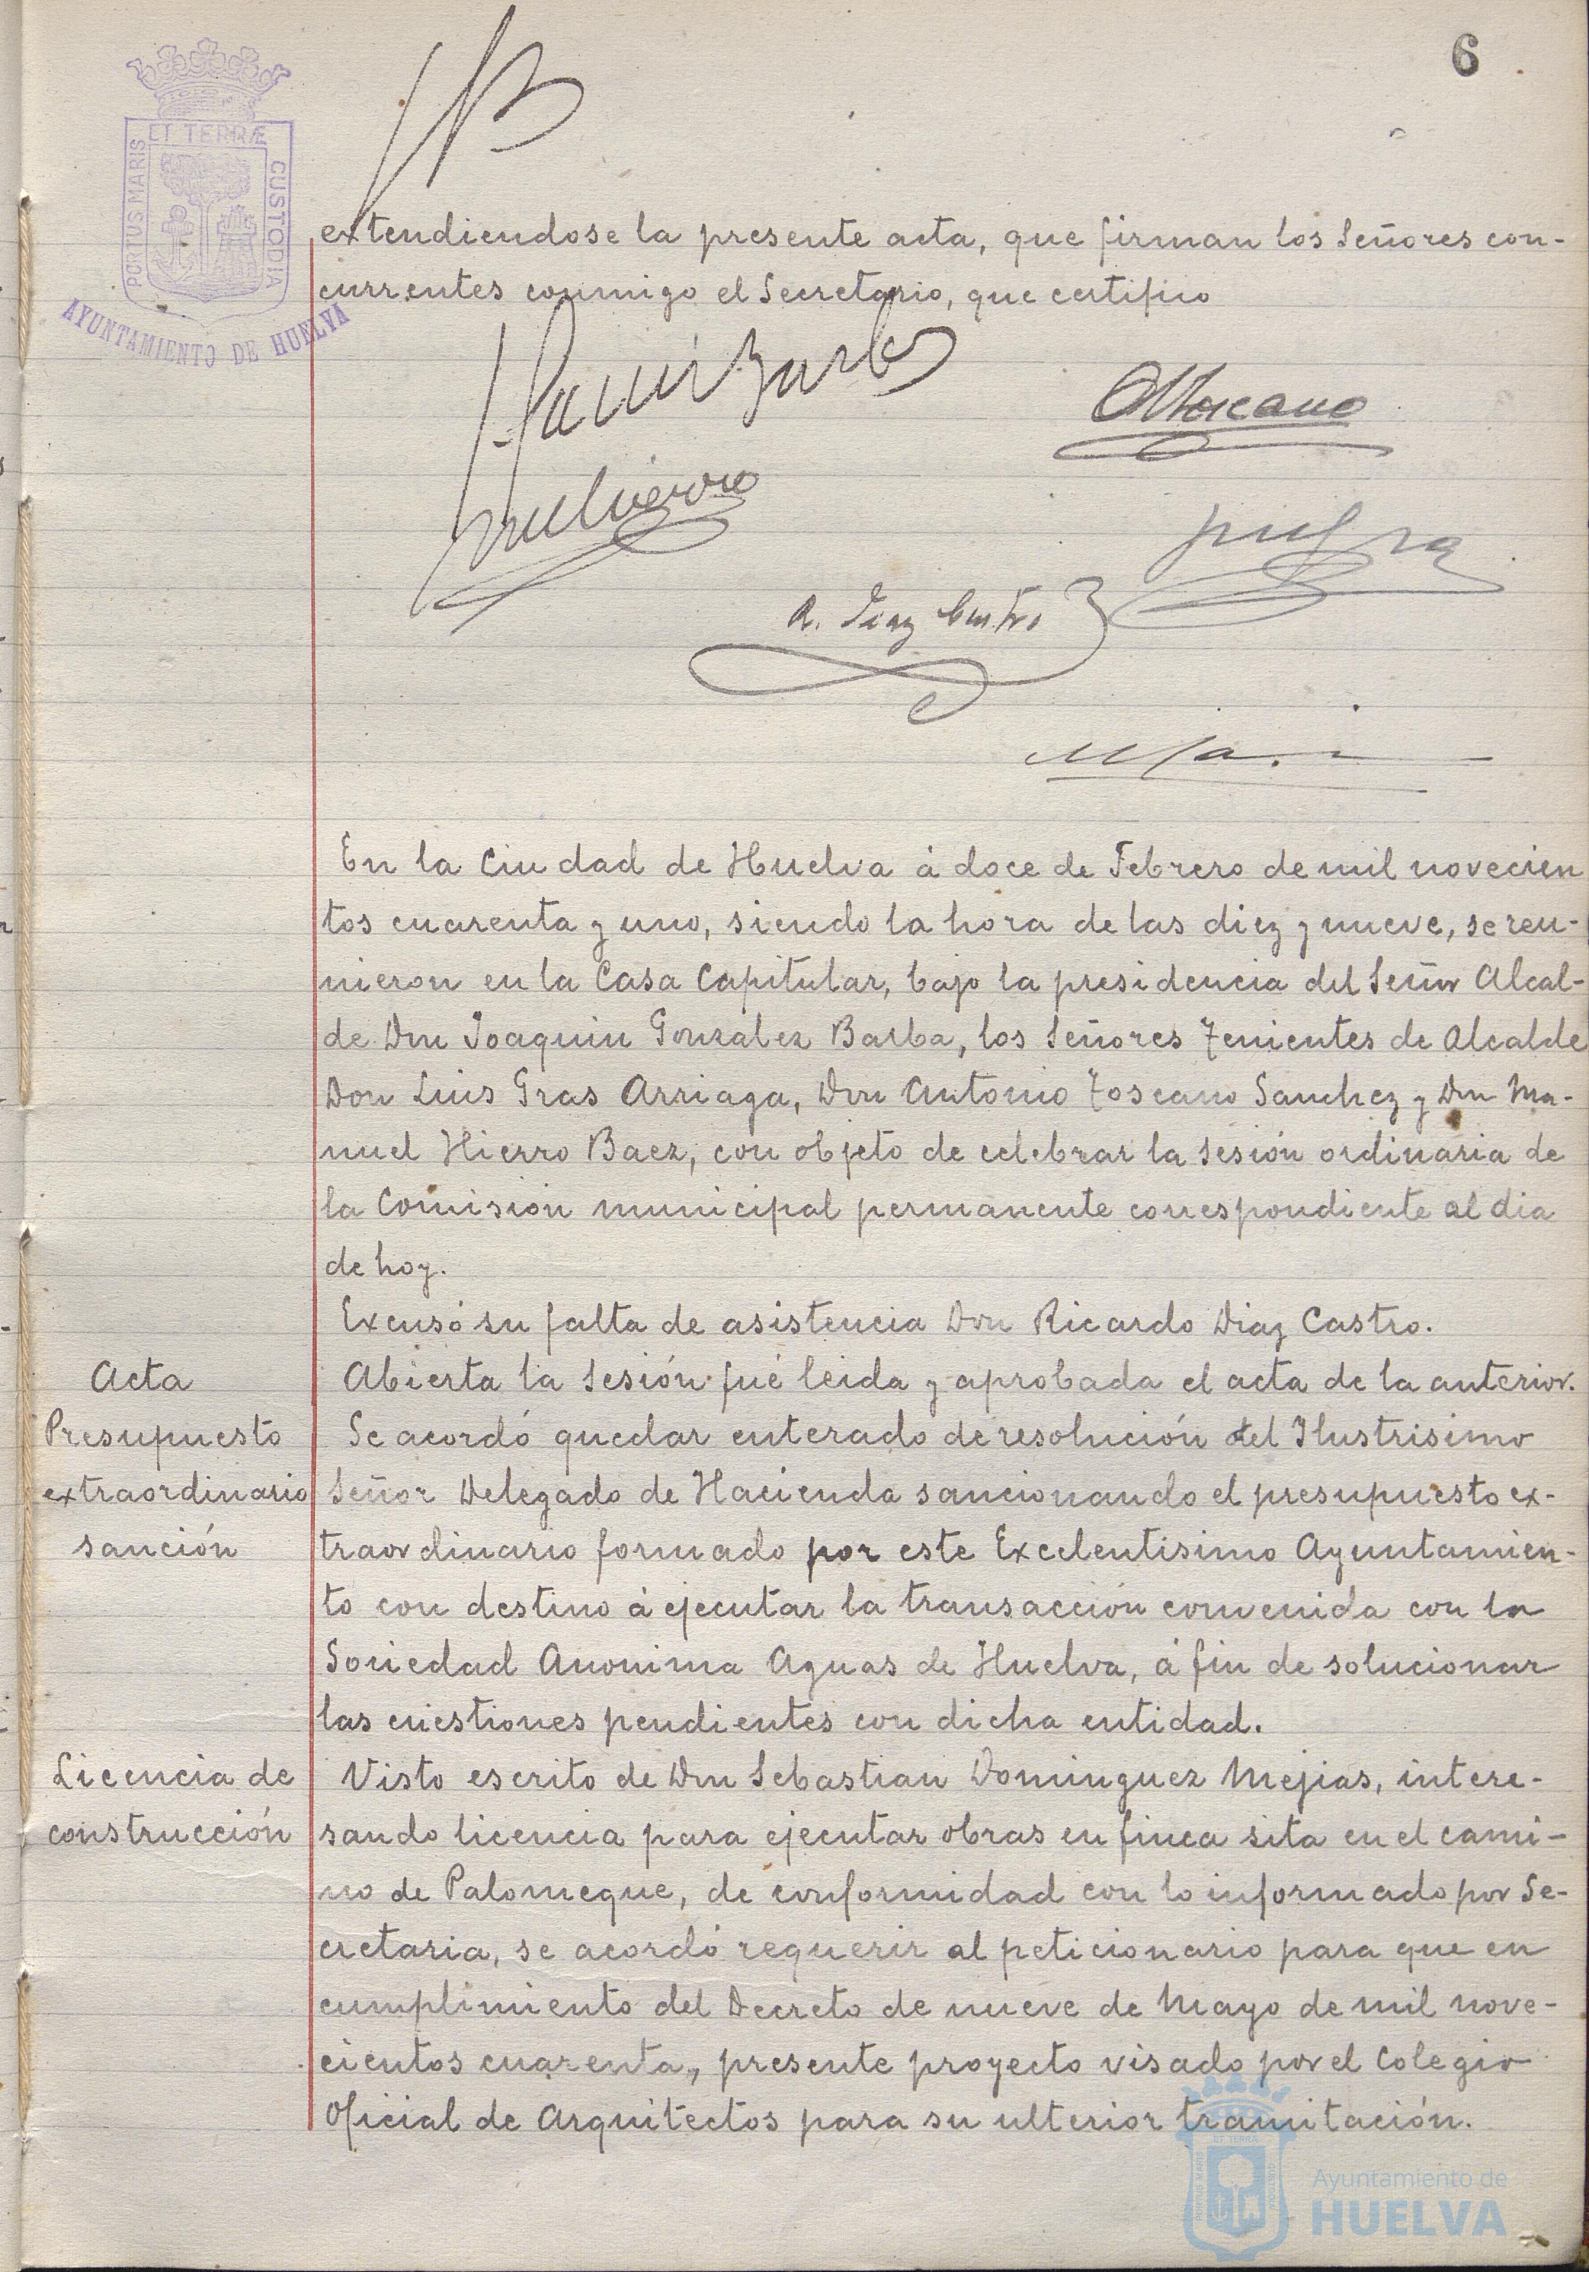 6
PORTUS MARIS ET TERRÆ CUSTODIA
AYUNTAMIENTO DE HUELVA
extendiendose la presente acta, que firman los Señores con-
currentes conmigo el Secretario, que certifico
A Toscano
R. Diaz Castro
En la Ciudad de Huelva á doce de Febrero de mil novecien
tos cuarenta y uno, siendo la hora de las diez y nueve, se reu-
nieron en la Casa Capitular, bajo la presidencia del Señor Alcal-
de Don Joaquin Gonzalez Barba, los Señores Tenientes de Alcalde
Don Luis Gras Arriaga, Don Antonio Toscano Sanchez y Don Ma-
nuel Hierro Baez, con objeto de celebrar la sesión ordinaria de
la Comisión municipal permanente correspondiente al dia
de hoy.
Excusó su falta de asistencia Don Ricardo Diaz Castro.
Acta
Abierta la sesión fué leida y aprobada el acta de la anterior.
Presupuesto
extraordinario
sanción
Se acordó quedar enterado de resolución del Ilustrisimo
Señor Delegado de Hacienda sancionando el presupuesto ex-
traordinario formado por este Excelentisimo Ayuntamien-
to con destino á ejecutar la transacción convenida con la
Sociedad Anonima Aguas de Huelva, á fin de solucionar
las cuestiones pendientes con dicha entidad.
Licencia de
construcción
Visto escrito de Don Sebastian Dominguez Mejias, intere-
sando licencia para ejecutar obras en finca sita en el cami-
no de Palomeque, de conformidad con lo informado por Se-
cretaria, se acordó requerir al peticionario para que en
cumplimiento del Decreto de nueve de Mayo de mil nove-
cientos cuarenta, presente proyecto visado por el Colegio
Oficial de Arquitectos para su ulterior tramitación.
Ayuntamiento de
HUELVA